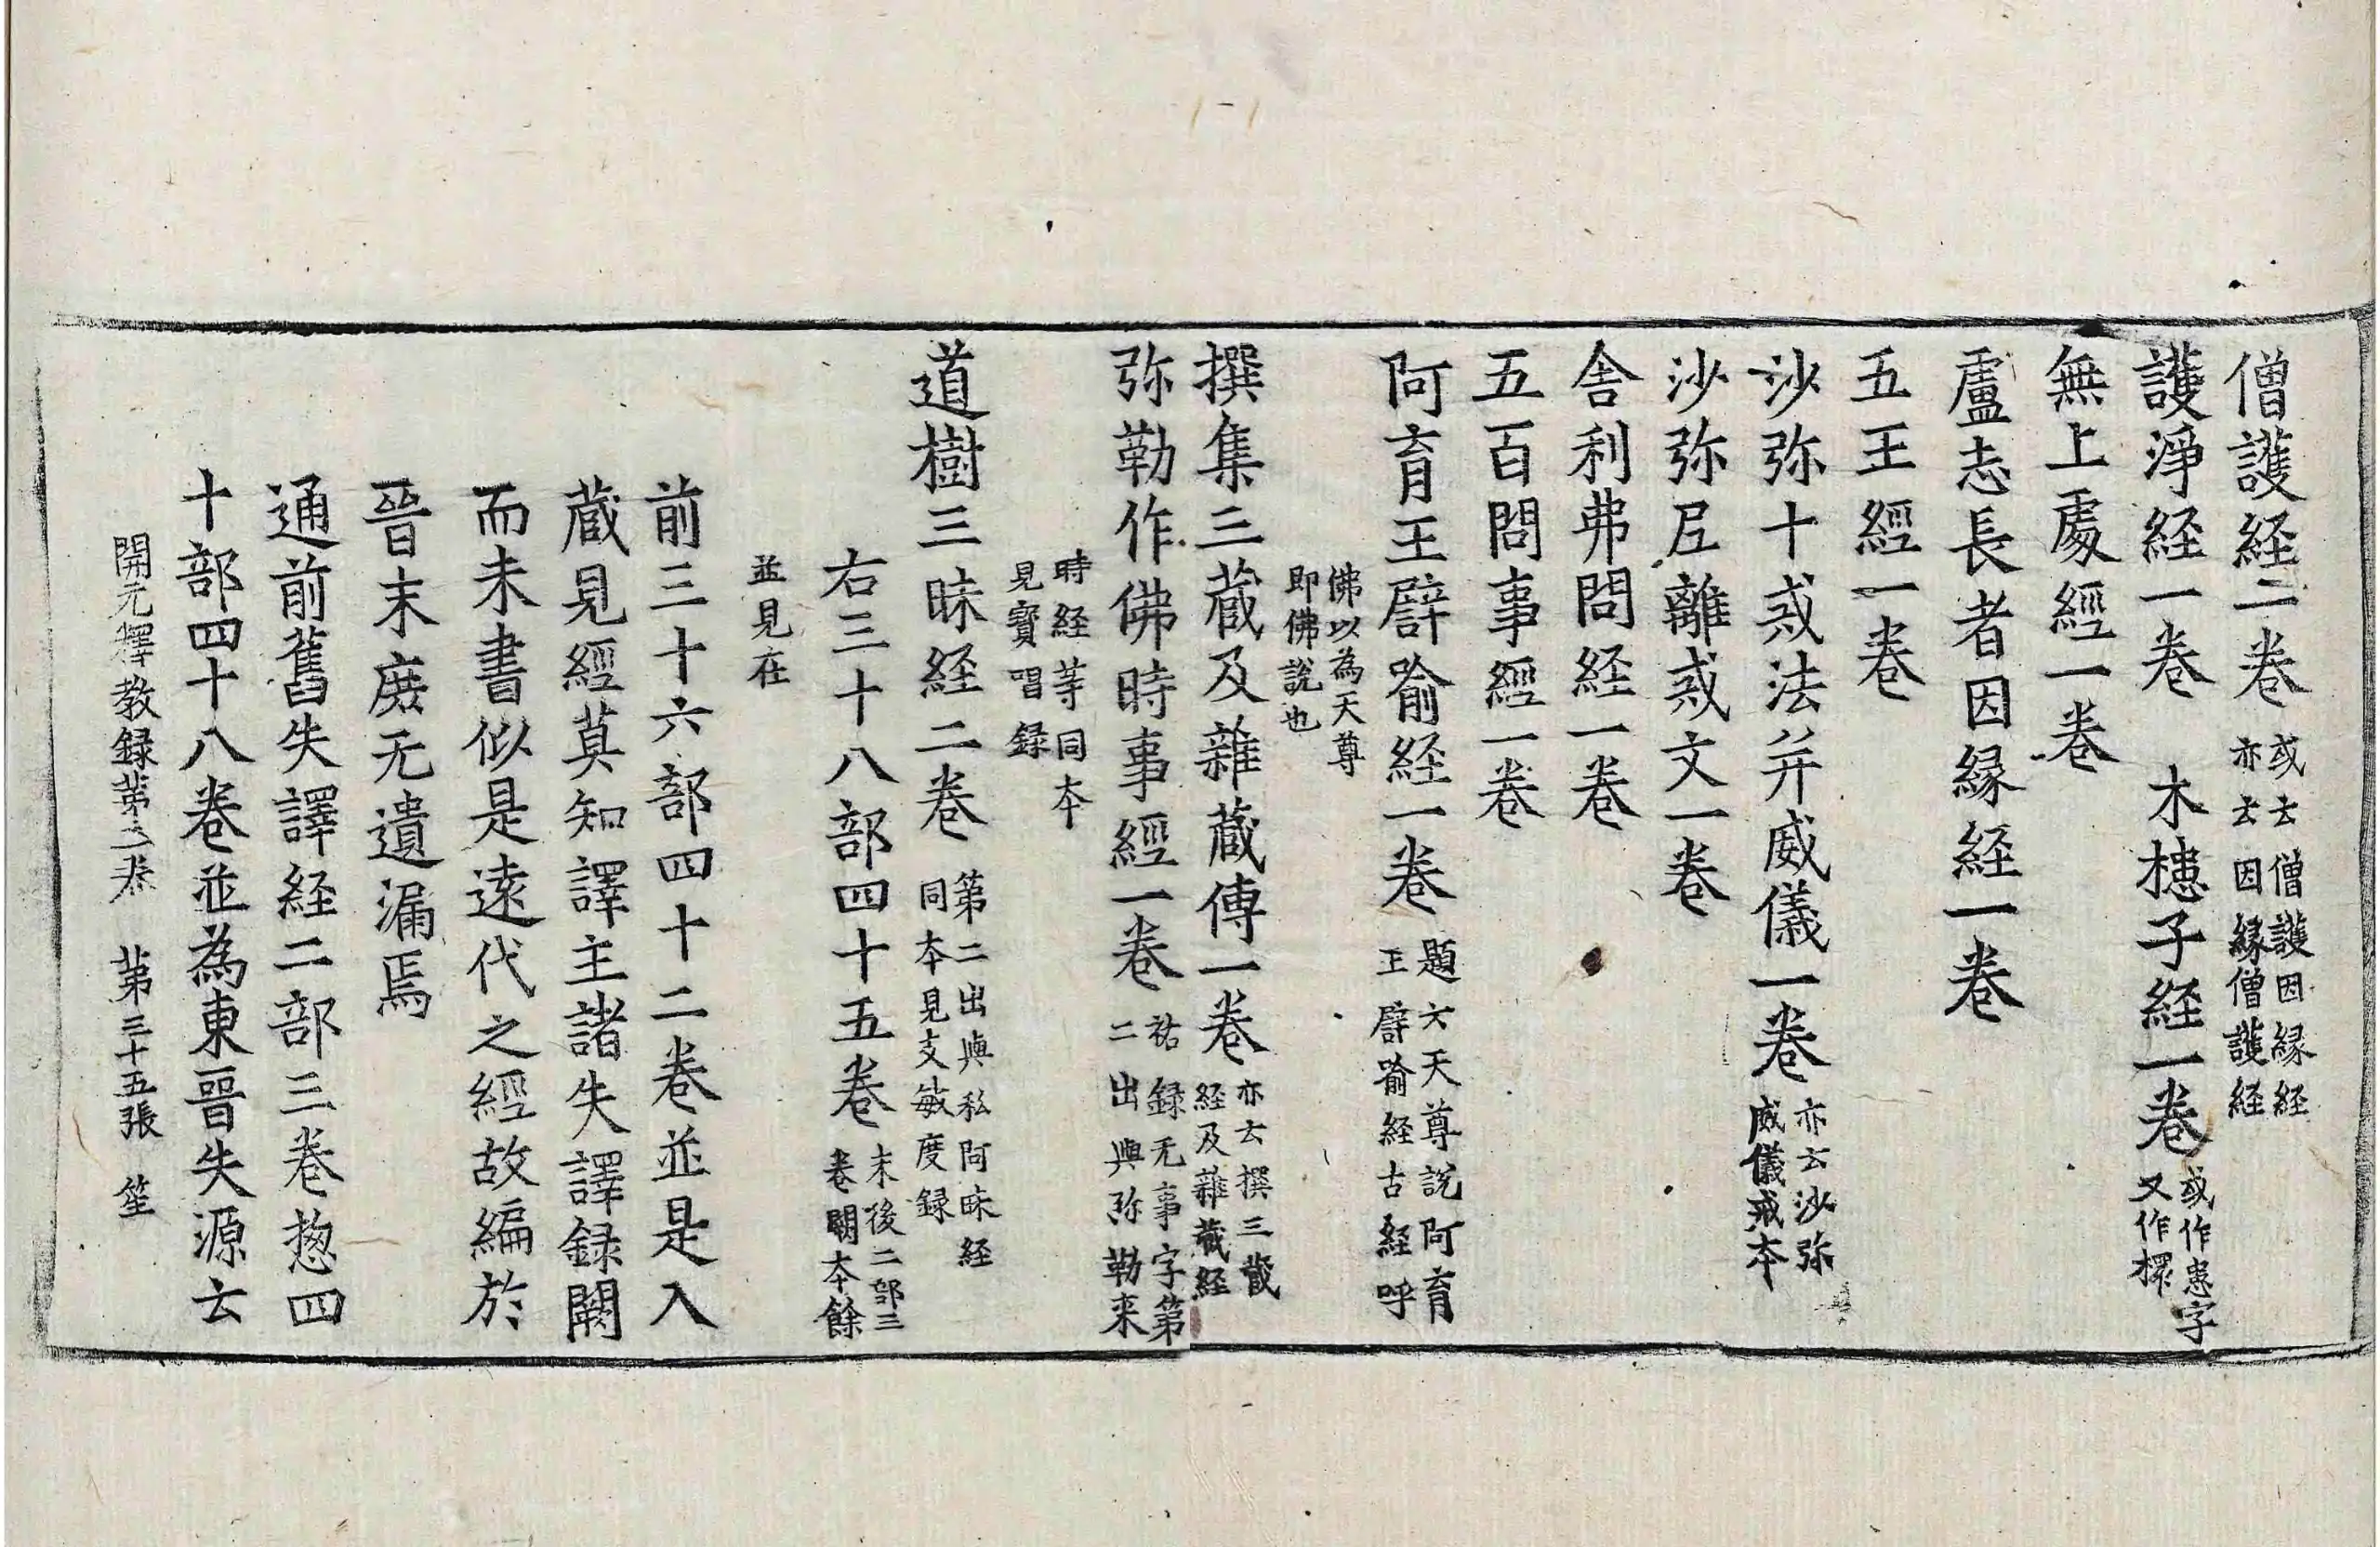 僧護経二巻 或云僧護因縁経亦云因縁僧護経
護淨経一巻 木槵子経一巻 或作患字又作㯠
無上處經一巻
盧志長者因縁経一巻
五王經一巻
沙弥十戒法并威儀一巻 亦云沙弥威儀戒本
沙弥尼離戒文一巻
舎利弗問経一巻
五百問事經一巻
阿育王譬喻経一巻 題云天尊說阿育王譬喻経古経呼
佛以為天尊即佛說也
撰集三蔵及雜蔵傳一巻 亦云撰三蔵経及雜蔵経
弥勒作佛時事經一巻 祐録无事字第二出與弥勒来
時経等同本見寳唱録
道樹三昧経二巻 第二出與私阿昧経同本見支敏度録
右三十八部四十五巻 末後二部三巻闕本餘
並見在
前三十六部四十二巻並是入
蔵見經莫知譯主諸失譯録闕
而未書似是遠代之經故編於
晉末庶无遺漏焉
通前舊失譯経二部三巻惣四
十部四十八巻並為東晉失源云
開元釋教録第三巻 第三十五張 笙